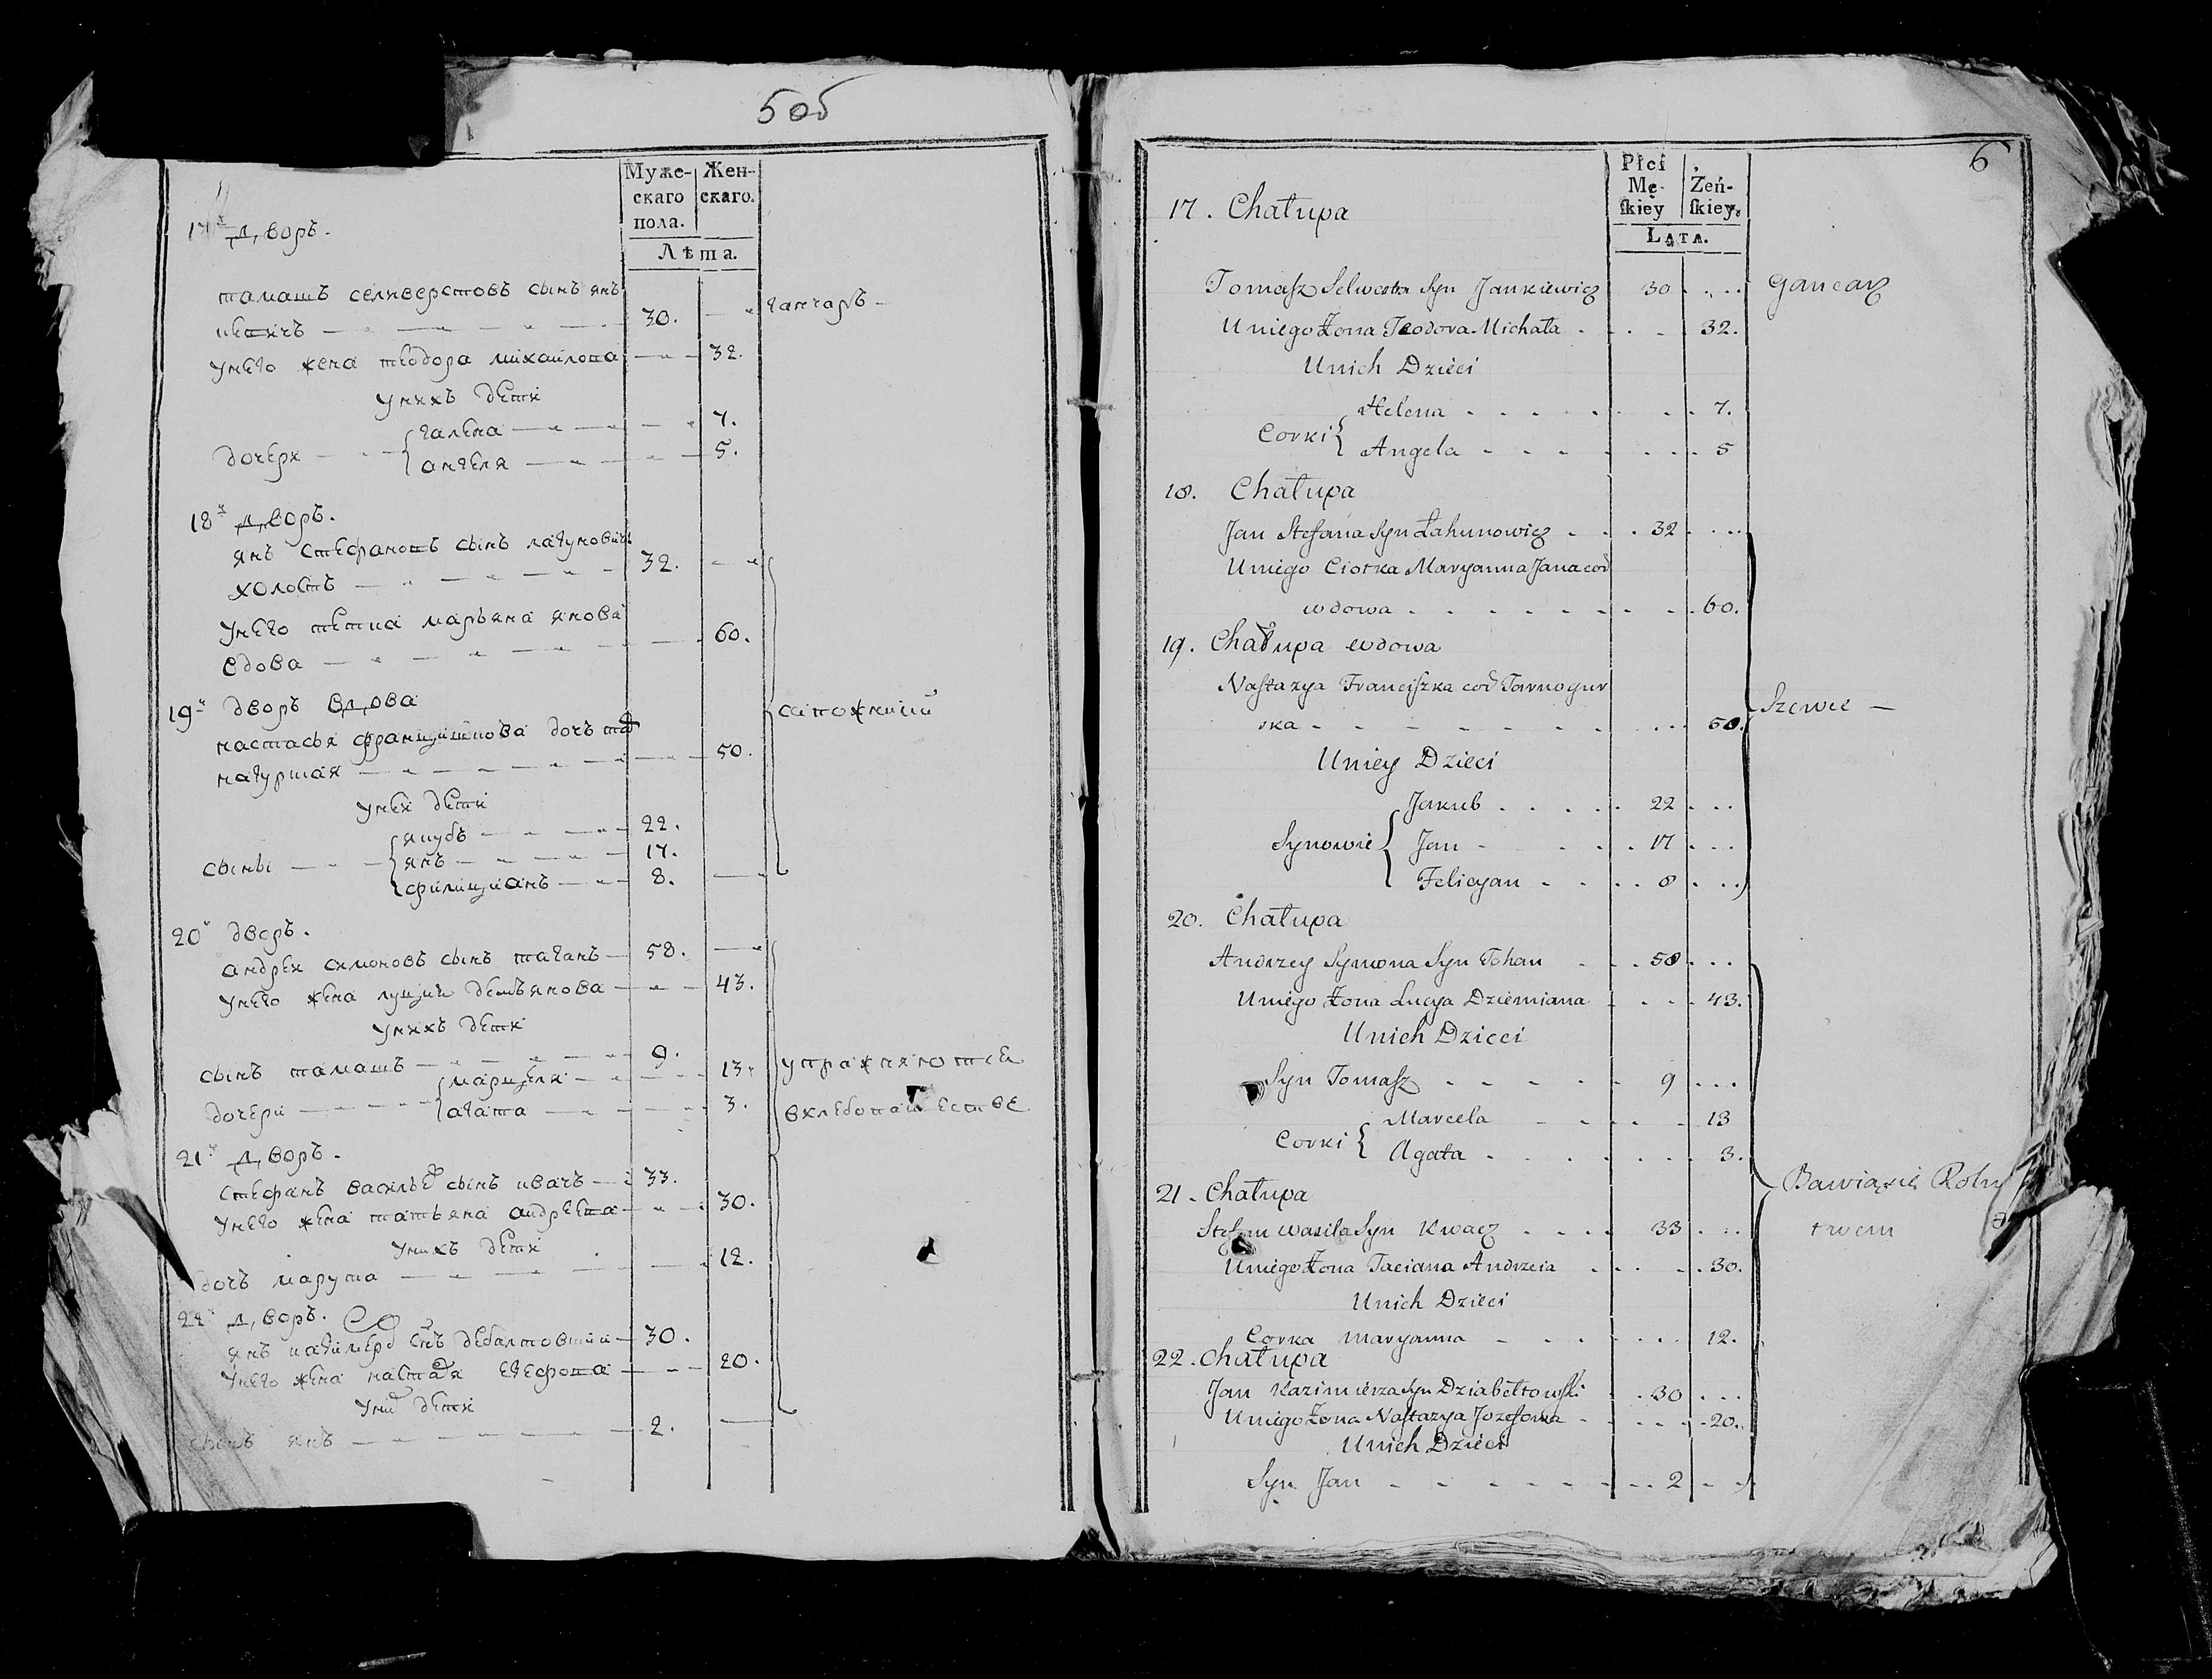 5об
Муже- Жен-
скаго скаго.
пола.
Лѣта.
17й дворъ.
тамашъ селиверстовъ сынъ янъ
кевичъ 30. ганчаръ
унего жена теодора михайлова 32.
унихъ дети
галена 7.
дочери
ангеля 5.
18й дворъ.
янъ стефановъ сынъ лагуновичъ
холостъ 32.
унего тетка марьяна янова
вдова 60.
19й дворъ вдова
сапожникъ
настасья францишкова дочъ тар
ногурская 50.
унеи дети
якубъ 22.
сыны янъ 17.
филициянъ 8.
20й дворъ.
андреи симоновъ сынъ таганъ 58.
унего жена луция демьянова 43.
унихъ дети
сынъ тамашъ 9.
упражняютси
марцеля 13.
дочери
агата 3.
вхлебопашестве
21й дворъ.
стефанъ василье сынъ квачъ 33.
унего жена татьяна андреева 30.
унихъ дети
дочъ марута 12.
22й дворъ.
янъ кагимеро снъ дебалтовски 30.
унего жена настазя 20.
уни дети
сынъ янъ 2.
6
Płci
Mę- Żeń-
skiey skiey.
LATA.
17. Chałupa
Tomasz Selwestra Syn Jankiewicz 30 Gancarz
Uniego Żona Teodora Michała 32.
Unich Dzieci
Helena 7.
Corki
Angela 5
18. Chałupa
Jan Stefana Syn Łahunowicz 32
Uniego Ciotka Maryanna Jana cor
wdowa 60.
19. Chałupa wdowa
Nastazya Franciszka cor Tarnogur
ska 50. Szewce
Uniey Dzieci
Jakub 22
Synowie Jan 17
Felicyan 8
20. Chałupa
Andrzey Symona Syn Tohan 58
Uniego Żona Lucya Dziemiana 43.
Unich Dzieci
Syn Tomasz 9
Marcela 13
Corki
Agata 3.
Bawiąsię Roln
21. Chałupa
Stefan Wasila Syn Kwacz 33 twem
Uniego Żona Taciana Andrzeia 30.
Unich Dzieci
Corka Maryanna 12.
22. Chałupa
Jan Kazimierza Syn Dziabełtowski 30
Uniego Żona Nastazya Jozefowa 20.
Unich Dzieci
Syn Jan 2